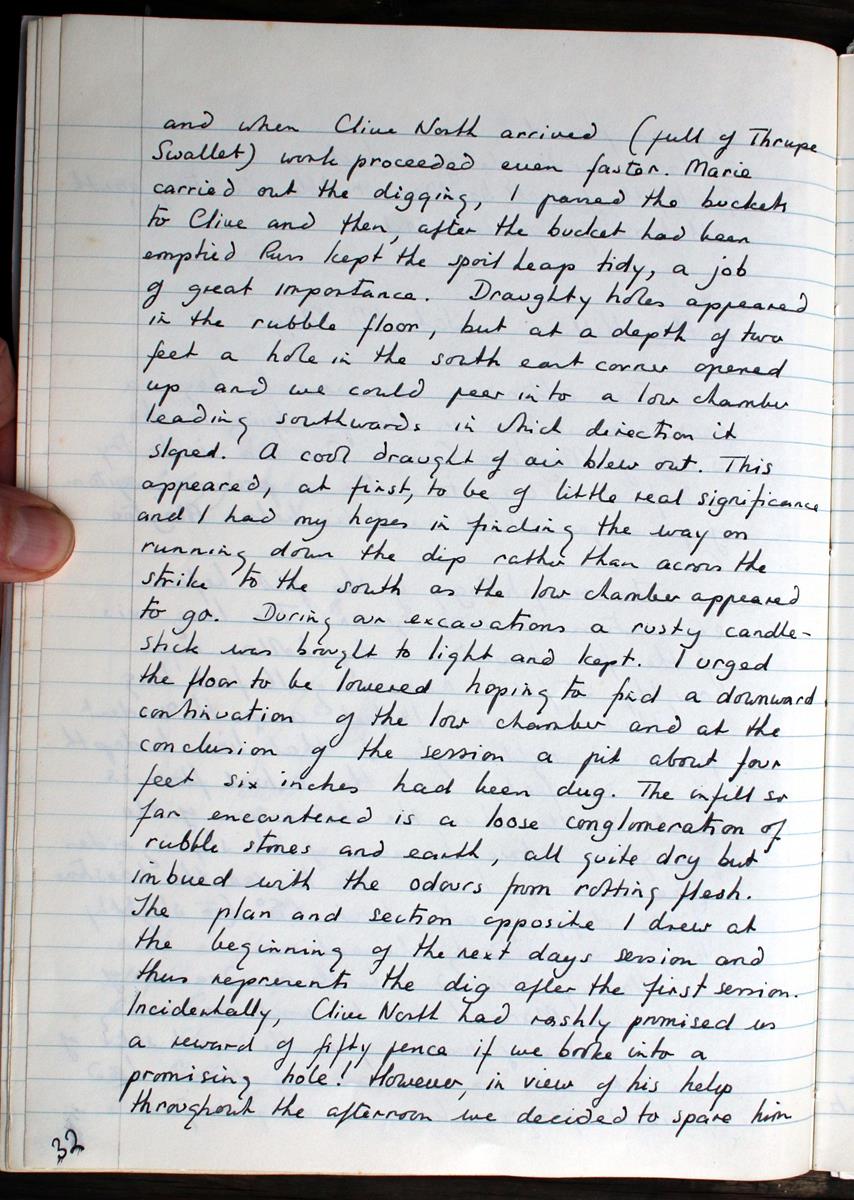 and when Clive North arrived (full of Thrupe
Swallet) work proceeded even faster. Marie
carried out the digging, I passed the buckets
to Clive and then, after the bucket had been
emptied Russ kept the spoil heap tidy, a job
of great importance. Draughty holes appeared
in the rubble floor, but at a depth of two
feet a hole in the south east corner opened
up and we could peer into a low chamber
leading southwards in which direction it
sloped. A cool draught of air blew out. This
appeared, at first, to be of little real significance
and I had my hopes in finding the way on
running down the dip rather than across the
strike to the south as the low chamber appeared
to go. During our excavations a rusty candle-
stick was brought to light and kept. I urged
the floor to be lowered hoping to find a downward
continuation of the low chamber and at the
conclusion of the session a pit about four
feet six inches had been dug. The infill so
far encountered is a loose conglomeration of
rubble stones and earth, all quite dry but
imbued with the odours from rotting flesh.
The plan and section opposite I drew at
the beginning of the next days session and
thus represents the dig after the first session.
Incidentally, Clive North had rashly promised us
a reward of fifty pence if we broke into a
promising hole! However, in view of his help
throughout the afternoon we decided to spare him
32